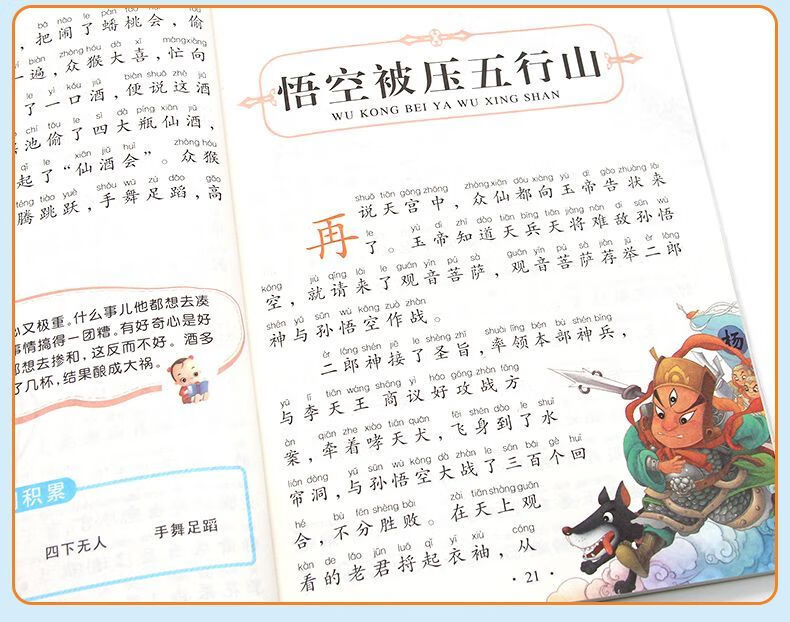 bà nào le pán táo huì tōu
，把闹了蟠桃会，偷
biàn zhòng hóu dà xǐ máng xiàng
一遍，众猴大喜，忙向
le yì kǒu jiǔ biàn shuō zhè jiǔ
了一口酒，便说这酒
chí tōu le sì dà píng xiān jiǔ
池偷了四大瓶仙酒，
qǐ le xiān jiǔ huì zhòng hóu
起了“仙酒会”。众猴
téng tiào yuè shǒu wǔ zú dǎo gāo
腾跳跃，手舞足蹈，高
又极重。什么事儿他都想去凑
事情搞得一团糟。有好奇心是好
都想去掺和，这反而不好。酒多
了几杯，结果酿成大祸。
积累
四下无人 手舞足蹈
悟空被压五行山
WU KONG BEI YA WU XING SHAN
shuō tiān gōng zhōng zhòng xiān dōu xiàng yù dì gào zhuàng lái
再说天宫中，众仙都向玉帝告状来
le yù dì zhī dào tiān bīng tiān jiàng nán dí sūn wù
了。玉帝知道天兵天将难敌孙悟
kōng jiù qǐng lái le guān yīn pú sà guān yīn pú sà jiàn jǔ èr láng
空，就请来了观音菩萨，观音菩萨荐举二郎
shén yǔ sūn wù kōng zuò zhàn
神与孙悟空作战。
èr láng shén jiē le shèng zhǐ shuài lǐng běn bù shén bīng
二郎神接了圣旨，率领本部神兵，
yǔ lǐ tiān wáng shāng yì hǎo gōng zhàn fāng
与李天王商议好攻战方
àn qiān zhe xiào tiān quǎn fēi shēn dào le shuǐ
案，牵着哮天犬，飞身到了水
lián dòng yǔ sūn wù kōng dà zhàn le sān bǎi gè huí
帘洞，与孙悟空大战了三百个回
hé bù fēn shèng bài zài tiān shàng guān
合，不分胜败。在天上观
kàn de lǎo jūn luō qǐ yī xiù cóng
看的老君捋起衣袖，从
杨
·21·